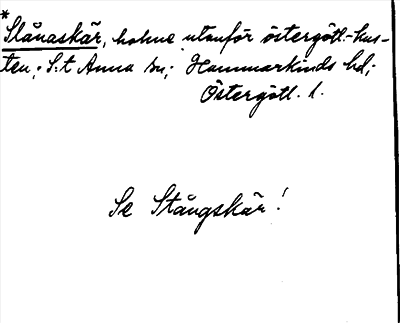 *
Slånaskär, holme utanför östergötl.-kus-
ten; S:t Anna sn; Hammarkinds hd;
Östergötl. l.
Se Stångskär!